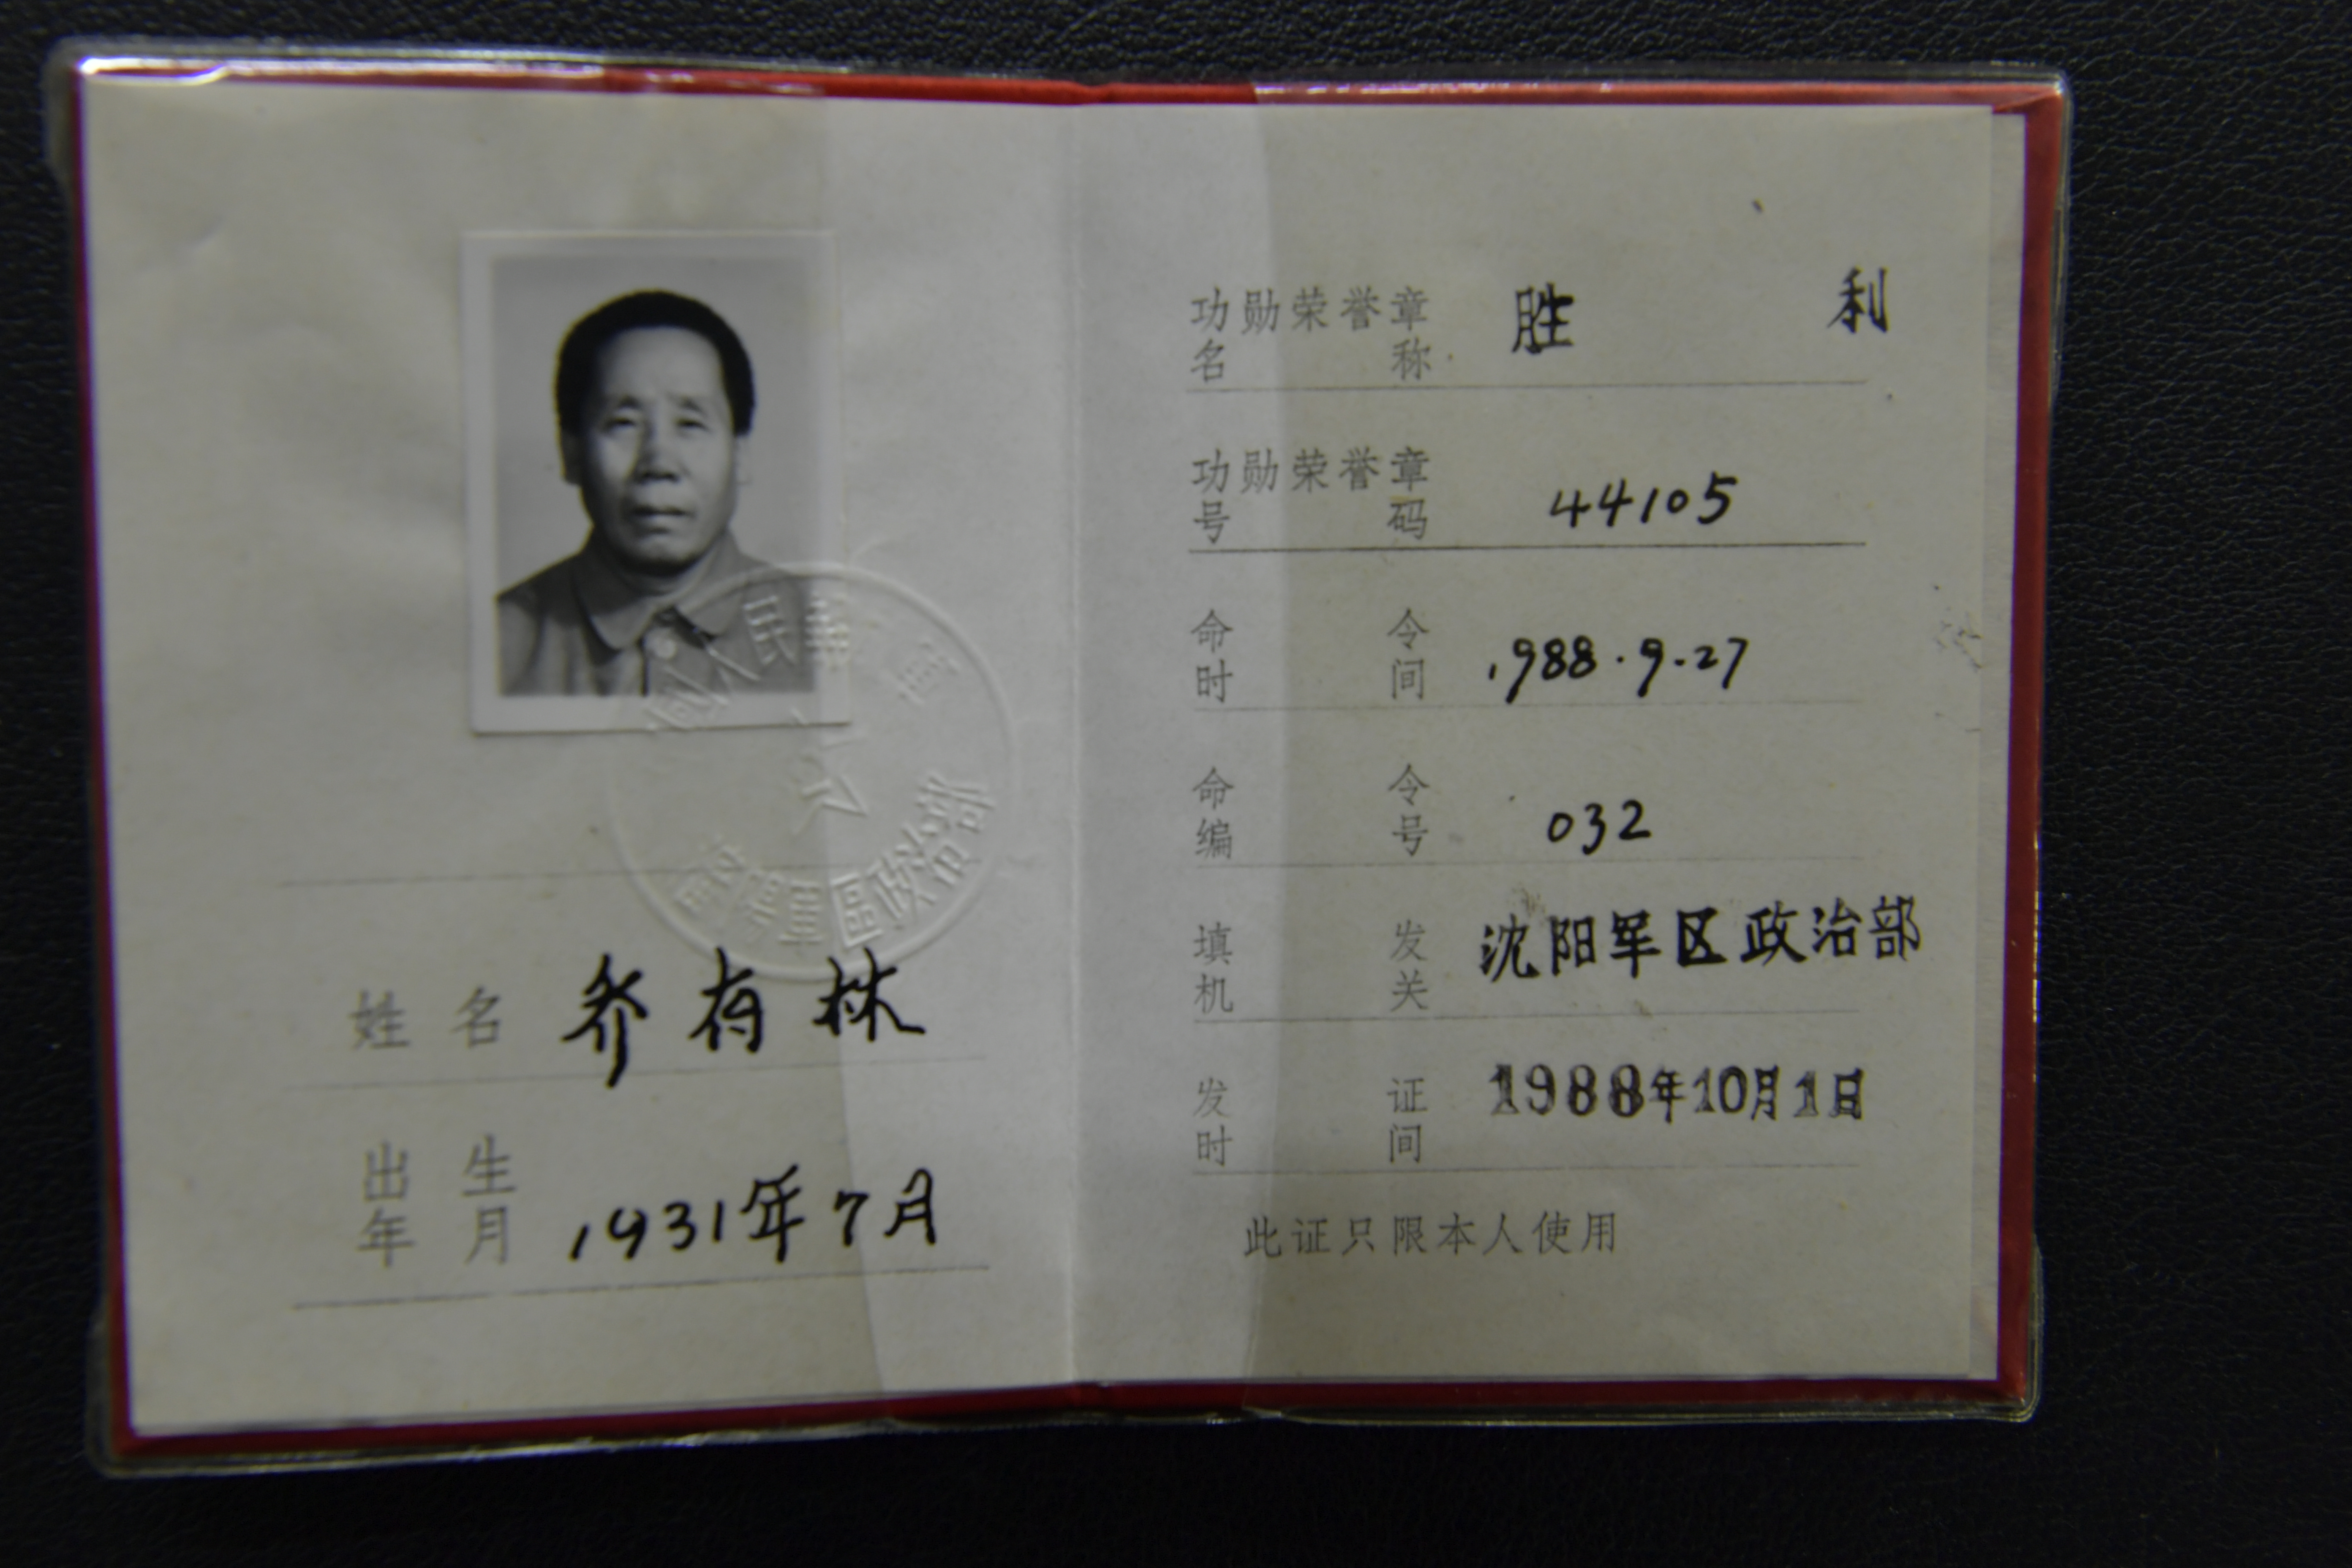 姓名 乔存林
出生
年月 1931年7月
功勋荣誉章 胜利
名称
功勋荣誉章
号码 44105
命令
时间 1988.9.27
命令
编号 032
填发 沈阳军区政治部
机关
发证 1988年10月1日
时间
此证只限本人使用
人民
軍區政治部